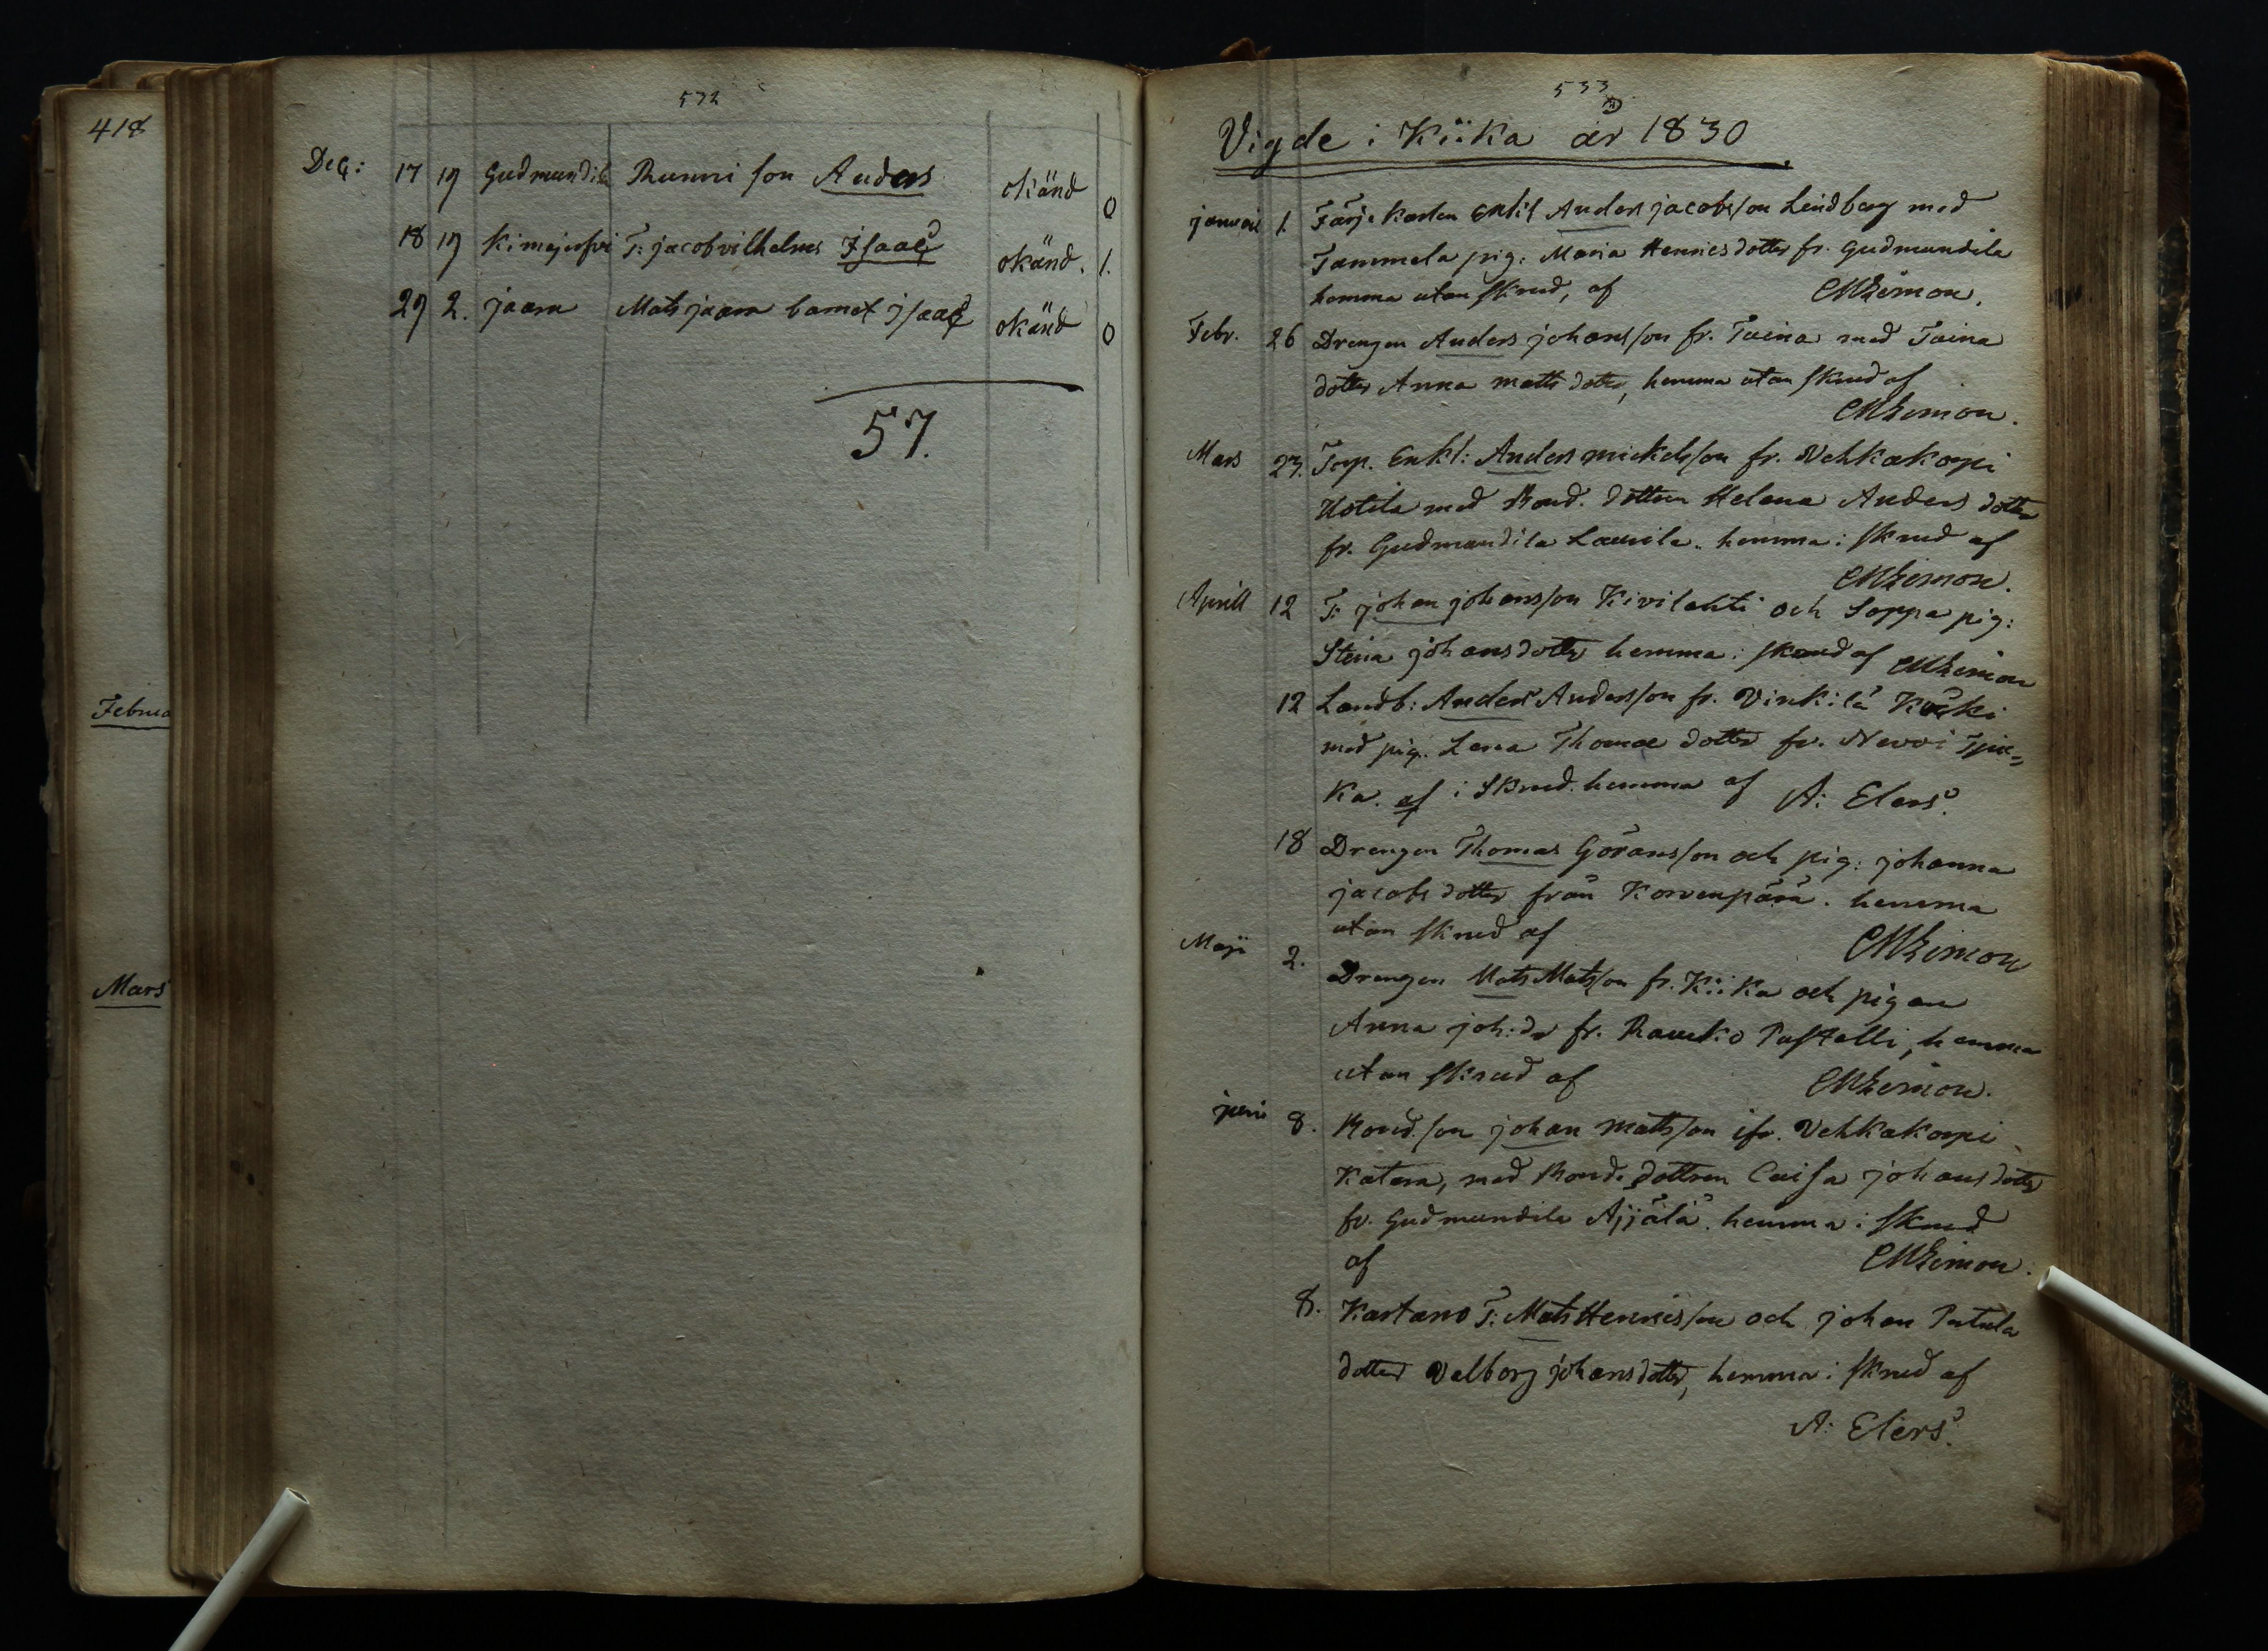 418
Februa
Mars
532
Dec: 17 19 Gudmundila Runni son Anders okänd 0
18 19 Kimajerfvi T: jacob vilhelms Isaac okänd. 1.
29 2. jaara Mats jaara barnet jsaac okänd 0
57.
533
Vigde i Kiika år 1830
januari 1. Färje karlen Enkl Anders jacobsson Lindberg med
Tammela pig: Maria Henricsdotter fr. Gudmundila
hemma utan skrud, af
Febr. 26 Drengen Anders johansson fr. Tuina med Tuina
dotter Anna matts dotter, hemma utan skrud af
Mars 23. Torp. Enkl: Anders mickelsson fr. Vehkakorpi
Uotila med Bond. dottren Helena Anders dotter
fr. Gudmundila Laurila. hemma i skrud af
Aprill 12 T: johan johansson Kivilahti och Soppa pig:
Stina johansdotter hemma i skrud af
12 Landb: Anders Andersson fr. Vinkilä Koski
med pig. Lena Thomae dotter fr. Nevoi
ka. af i skrud. hemma af A: Elers.
18 Drengen Thomas Göransson och pig: johanna
jacobs dotter från Korvenpärä. hemma
utan skrud af
Maji 2. Drengen Mats Matsson fr. Kiika och pigan
Anna joh:dr fr. Rauko Pastelli, hemma
utan skrud af
juni 8. Bond.son johan mattsson ifr. Vehkakorpi
Katara, med Bond. dottren Caisa johansdotter
fr. Gudmundila Ajjälä. hemma i skrud
af
8. Kartano T: Mats Henricsson och johan Patula
dotter Valborg johansdotter, hemma i skrud af
A: Elers.